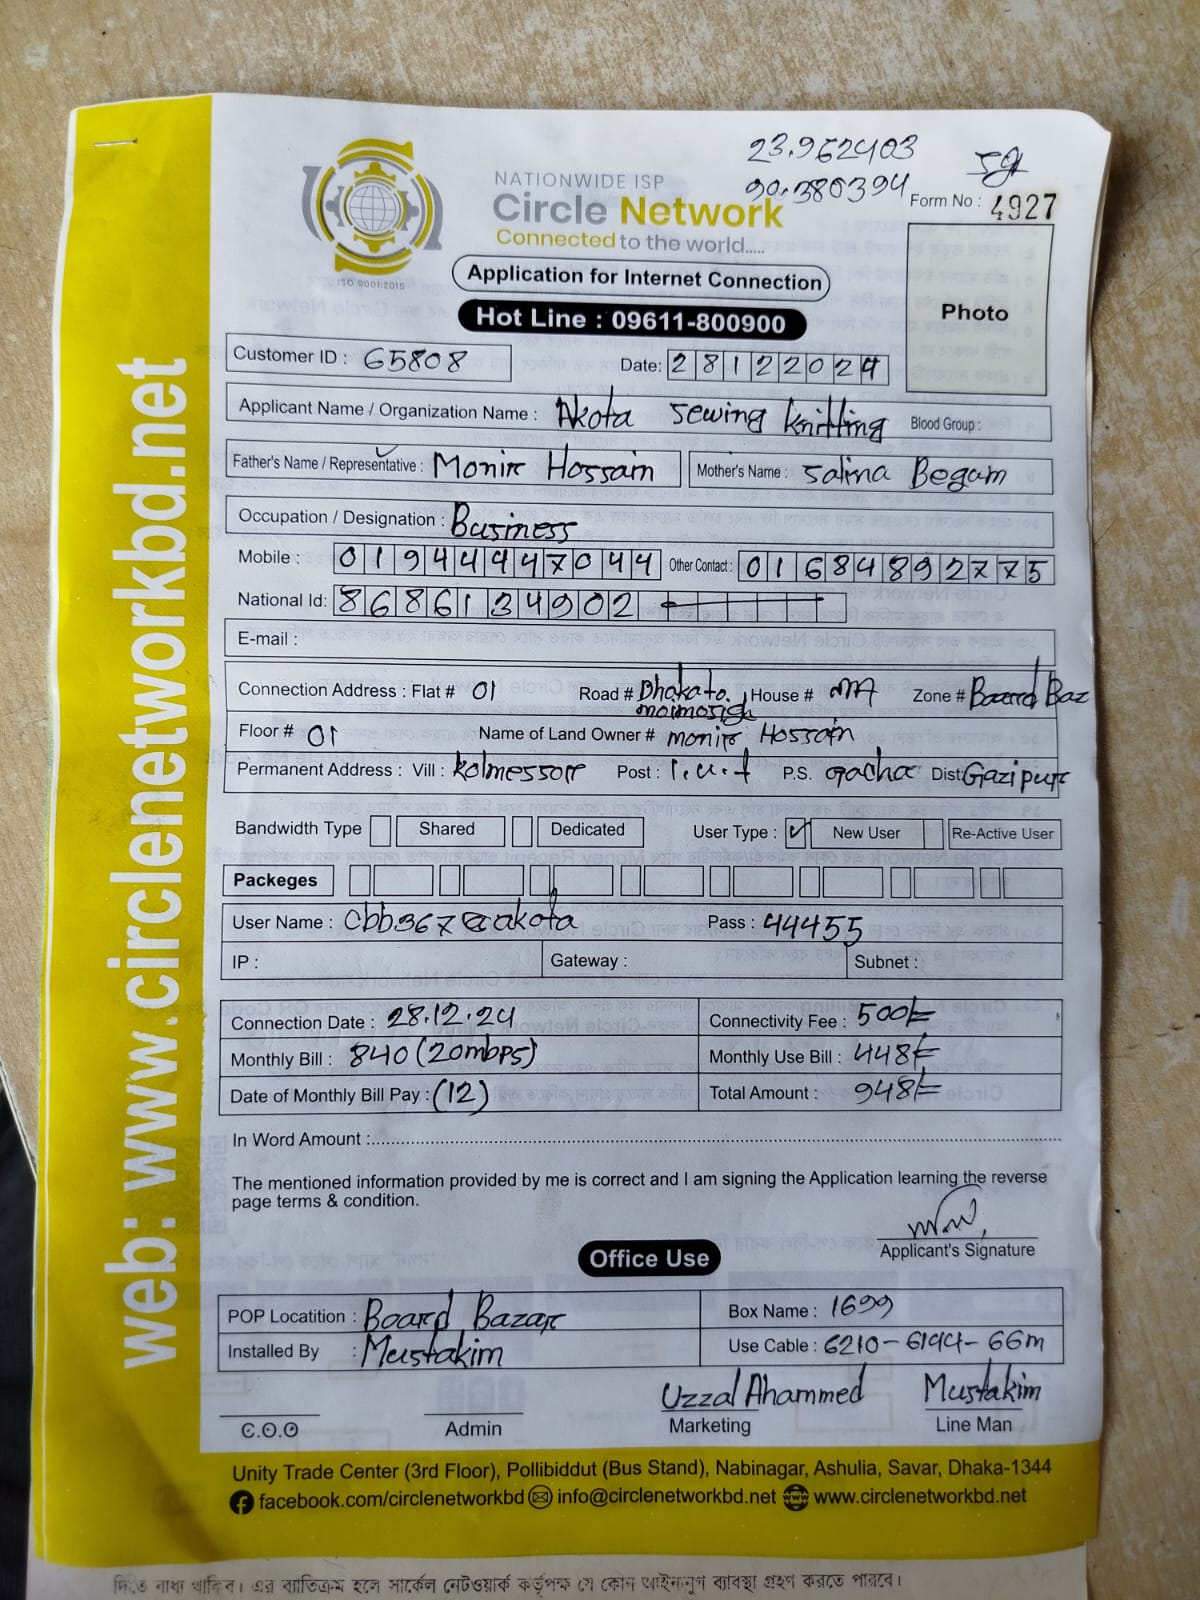 23.962403
90.380394
NATIONWIDE ISP
Circle Network
Connected to the world.....
ISO 9001:2015
Form No : 4927
Application for Internet Connection
Hot Line : 09611-800900
Photo
Customer ID : 65808 Date: 28122024
Applicant Name / Organization Name : Akota Sewing knitting Blood Group :
Father's Name / Representative : Monir Hossain Mother's Name : Salina Begam
Occupation / Designation : Business
Mobile : 01944447044 Other Contact : 01684892775
National Id: 8686134902
E-mail :
Connection Address : Flat # 01 Road # Dhaka to moimosigh House # Zone # Board Baz
Floor # 01 Name of Land Owner # monir Hossain
Permanent Address : Vill : kolmessorr Post : I.u.t P.S. gacha Dist: Gazipur
Bandwidth Type Shared Dedicated User Type : New User Re-Active User
Packeges
User Name : cbb367 akota Pass : 44455
IP : Gateway : Subnet :
Connection Date : 28.12.24 Connectivity Fee : 500/=
Monthly Bill : 840 (20mbps) Monthly Use Bill : 448/=
Date of Monthly Bill Pay : (12) Total Amount : 948/=
In Word Amount :
The mentioned information provided by me is correct and I am signing the Application learning the reverse
page terms & condition.
Applicant's Signature
Office Use
POP Locatition : Board Bazar Box Name : 1699
Installed By : Mustakim Use Cable : 6210-6144-66m
Uzzal Ahammed Mustakim
C.O.O Admin Marketing Line Man
Unity Trade Center (3rd Floor), Pollibiddut (Bus Stand), Nabinagar, Ashulia, Savar, Dhaka-1344
facebook.com/circlenetworkbd info@circlenetworkbd.net www.circlenetworkbd.net
web: www.circlenetworkbd.net
দিতে বাধ্য থাকিব। এর ব্যতিক্রম হলে সার্কেল নেটওয়ার্ক কর্তৃপক্ষ যে কোন আইনানুগ ব্যবস্থা গ্রহণ করতে পারবে।